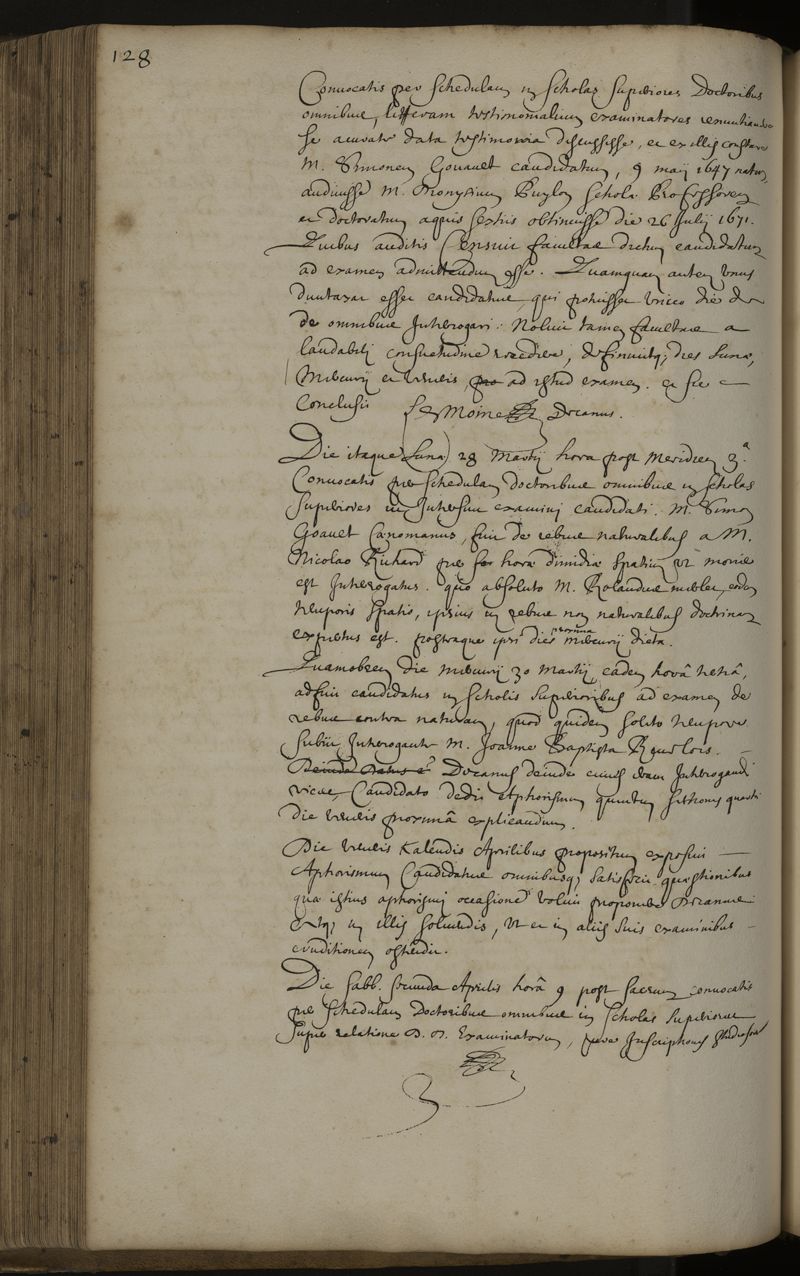 128
Convocatis per schedulam in scholas superiores Doctoribus
omnibus, litteram testimonialium examinatores renuntiantes
se accurate data testimonia discussisse, et ex illis constare
M. Simonem Gouault candidatum, 9 maij 1647 natum,
audiuisse M. Dionysium Puylon schola Professorem
et doctoratum aquis sextiis obtinuisse die 26 Julij 1671.
Quibus auditis Censuit facultas dictum candidatum
ad examen admittendum esse. Quamquam autem unus
duntaxat esset candidatus, qui potuisset unico die
de omnibus Interrogari: Noluit tamen facultas a
laudabili consuetudine recedere, definiuitq; dies Lunæ,
Mercurij et veneris, pro ad istud examen. et sic
Conclusit Le Moine Decanus.
Die itaque Lunæ 28 Martij hora post Meridiem 3.a
Convocatis per schedulam doctoribus omnibus in scholas
superiores ut Interessent examini candidati. M. Simon
Goault Cænomanus, fuit de rebus naturalibus a M.
Nicolao Richard per hora dimidiæ spatium ut moris
est Interrogatus. quo absoluto M. Rolandus eodem
temporis spatio, ipsius in rebus non naturalibus doctrinam
expertus est. postraque ipsi dies proxima mercurij dicta.
Quamobrem die mercurij 30 Martij eadem horâ tertiâ,
adfuit candidatus in scholis superioribus ad examen de
rebus contra naturam, quod quidem solito tempore
subiit, Interrogante M. Joanne Baptista
Deinde Datus e Decanus deinde cuius erant Interrogandi
vices, Candidato dedit aphorismum quintum sectionis quartæ
die veneris proximâ explicandum.
Die veneris Kalendis Aprilibus propositum exposuit
Aphorismum Candidatus omnibusq; satisfecit quæstionibus
quæ istius aphorismi occasione voluit proponere Decanus
in illis soluendis, ut et in aliis suis examinibus
eruditionem ostendit.
Die sabb. secunda Aprilis horâ 9 post sacrum convocatis
per schedulam Doctoribus omnibus in scholas superiores
super relatione D. D. Examinatorum, Inscriptiones